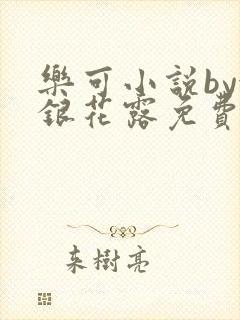 樂可小說by
銀花露免費
来樹亮